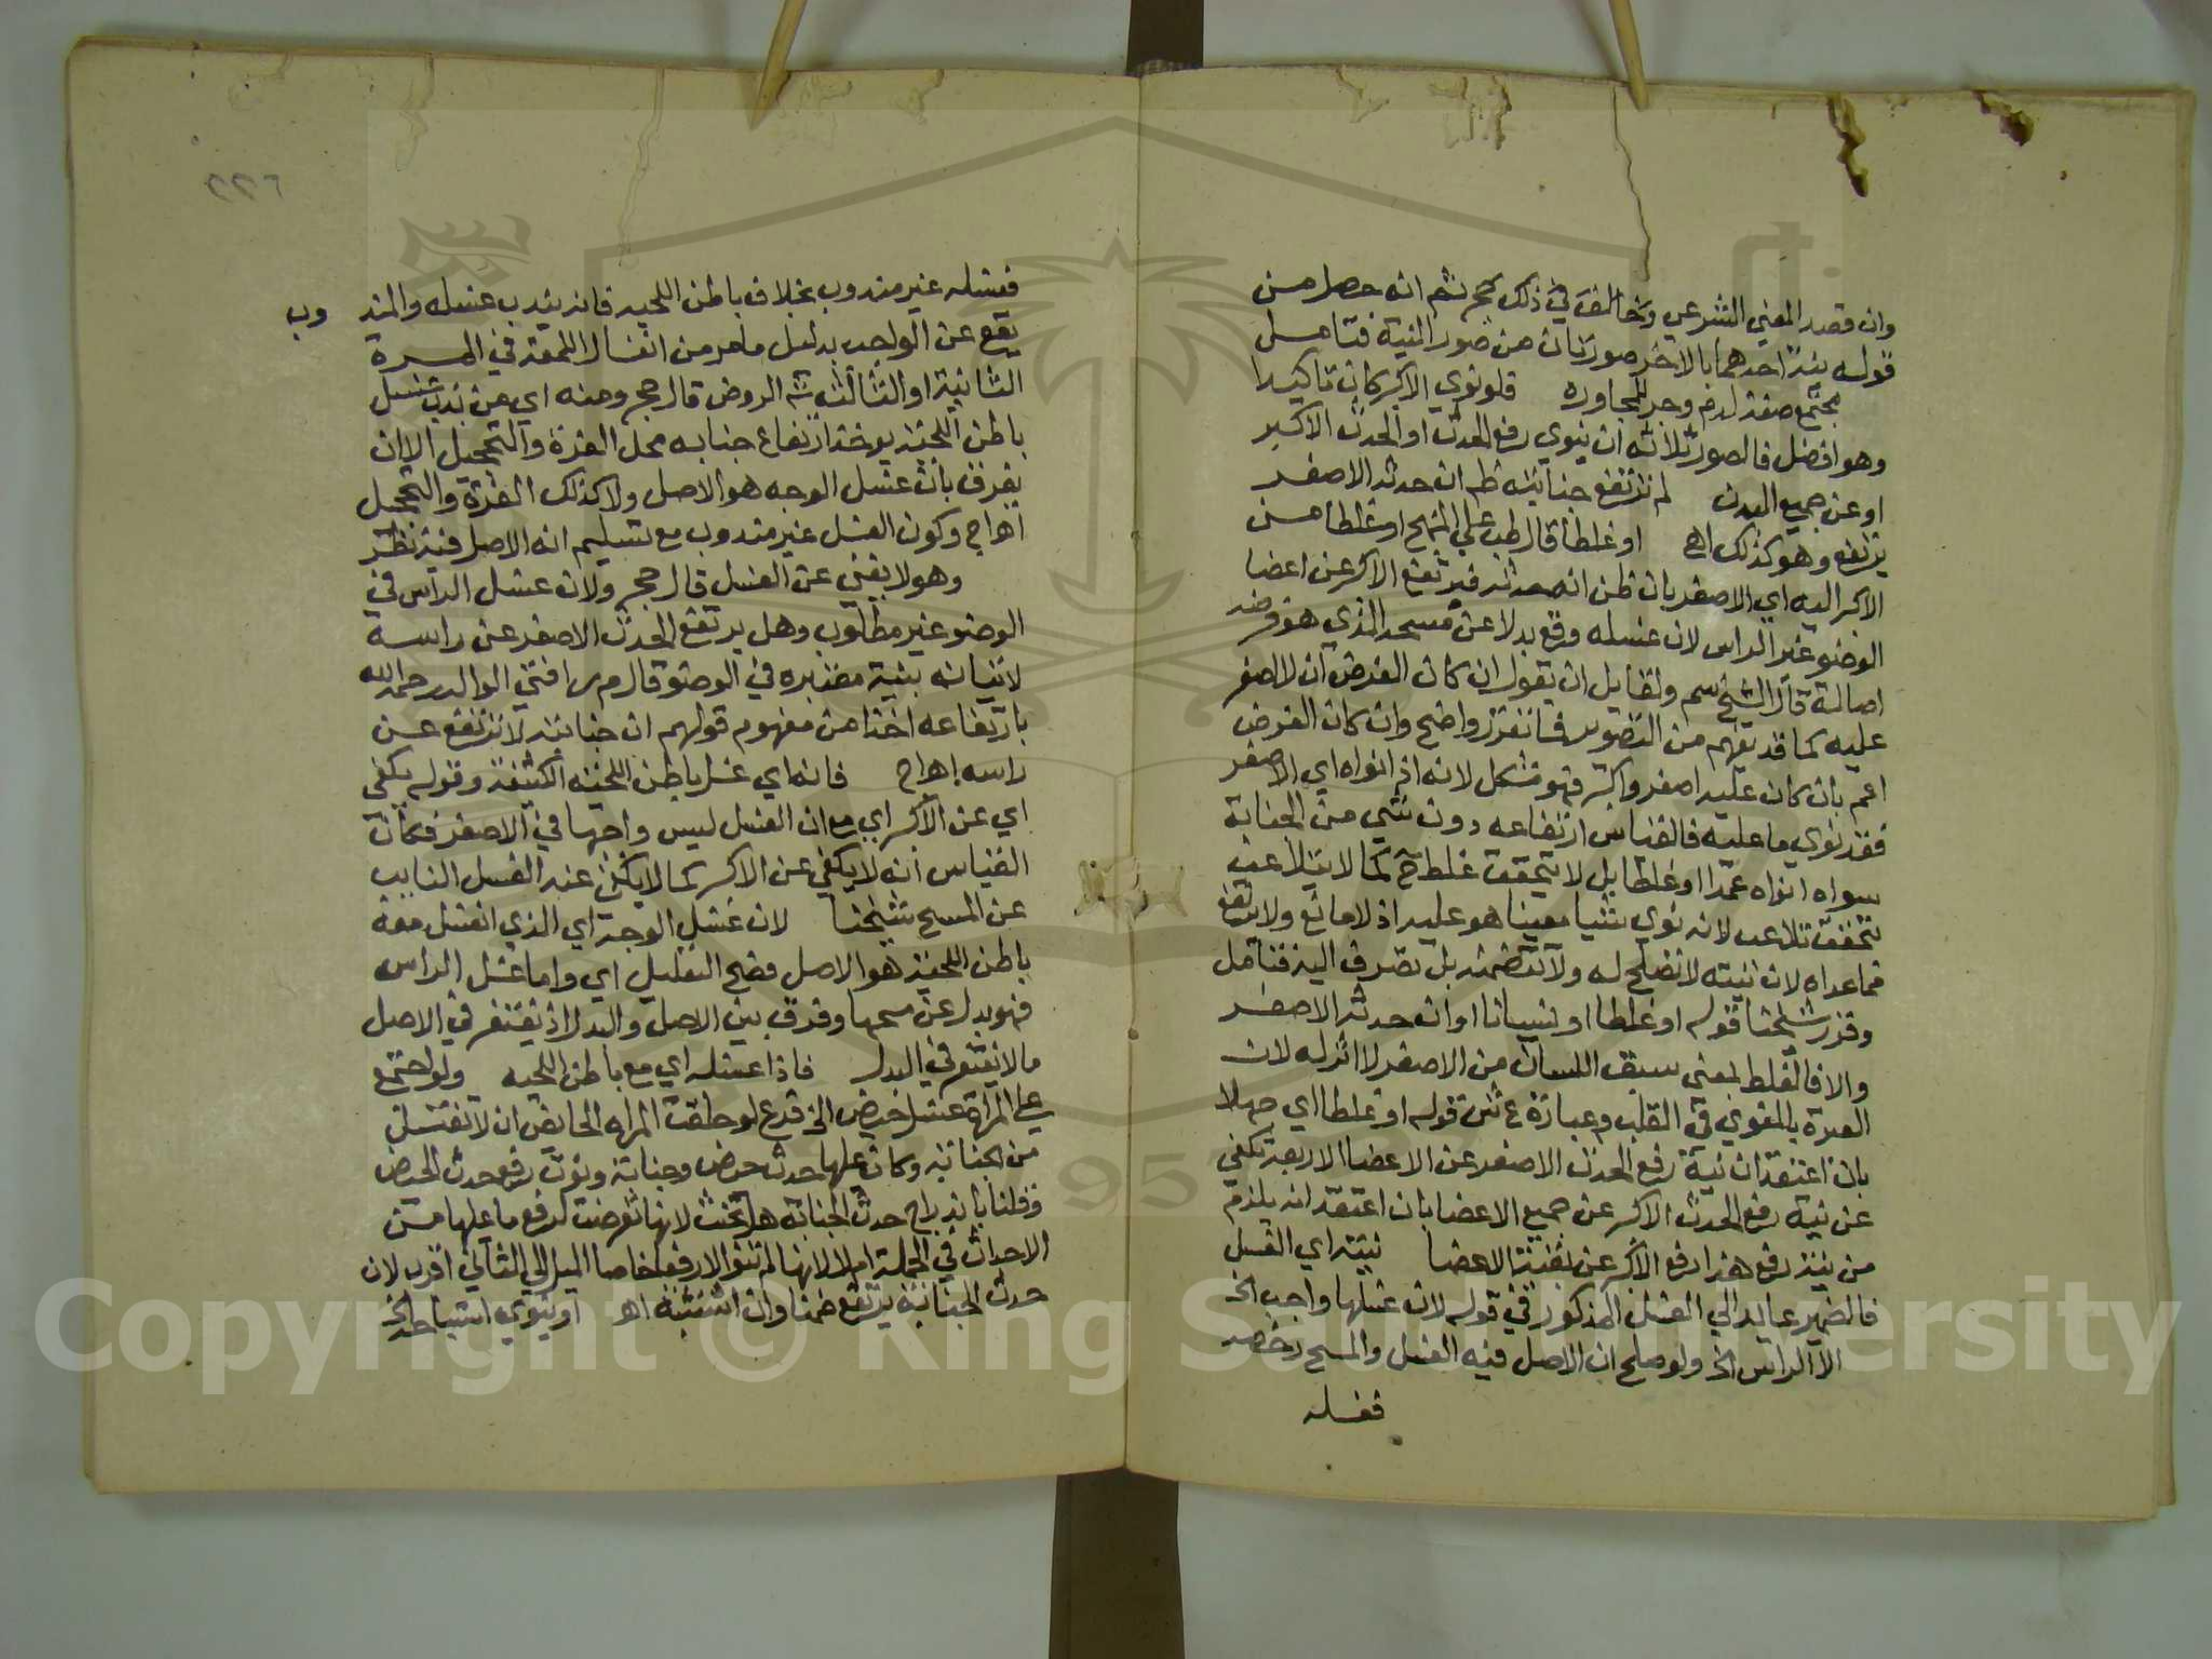 وان قصد المعني الشرعي وخالف في ذلك حجر ثم انه حصل من
قوله بنية احدهما بالاخر صورتان من صور النية فتامل
مجتمع صفة لدم وجر للمجاورة فلو نوي الاكبر كان تاكيدا
وهو افضل فالصور ثلاثة ان ينوي رفع الحدث او الحدث الاكبر
او عن جميع البدن لم ترتفع جنابته ظم ان حدثه الاصغر
يرتفع وهو كذلك اهـ او غلطا قال طب علي المنهج او غلطا من
الاكبر اليه اي الاصغر بان ظن انه حدثه فيرتفع الاكبر عن اعضا
الوضو غير الراس لان غسله وقع بدلا عن مسحه الذي هو فرضه
اصالة قال الشيخ سم ولقايل ان يقول ان كان الفرض ان لا اصغر
عليه كما قد يفهم من التصوير فما تقرر واضح وان كان الفرض
اعم بان كان عليه اصغر واكبر فهو مشكل لانه اذا نواه اي الاصغر
فقد نوي ما عليه فالقياس ارتفاعه دون شي من الجنابة
سواه انواه عمدا او غلطا بل لا يتحقق غلط ح كما لا يتلاعب
يتحقق تلاعب لانه نوي شيا معينا هو عليه اذ لا مانع ولا يرتفع
فما عداه لان نيته لا تصلح له ولا تتضمنه بل تصرف اليه فتامل
وقرر شيخنا قوله او غلطا او نسيانا او ان حدثه الاصغر
والا فالغلط بمعني سبق اللسان من الاصغر لا اثر له لان
العبرة بالمنوي في القلب وعبارة ع ش قوله او غلطا اي جهلا
بان اعتقد ان نية رفع الحدث الاصغر عن الاعضا الاربعة تكفي
عن نية رفع الحدث الاكبر عن جميع الاعضا بان اعتقد انه يلزم
من نية رفع هذا رفع الاكبر عن بقية الاعضا نيته اي الغسل
فالضمير عايد الي الغسل المذكور في قوله لان غسلها واجب الخ
الا الراس الخ ولو صلح ان الاصل فيه الغسل والمسح رخصه
فغسله
٢٢٦
فغسله غير مندوب بخلاف باطن اللحيه فانه يندب غسله والمند وب
يقع عن الواجب بدليل ما مر من انغسال اللمعة في المرة
الثانية او الثالثه شه الروض قال حجر ومنه اي من ندب غسل
باطن اللحية يوخذ ارتفاع جنابه محل الغرة والتحجيل الا ان
يفرق بان غسل الوجه هو الاصل ولا كذلك الغرة والتحجيل
اهـ اج وكون الغسل غير مندوب مع تسليم انه الاصل فيه نظر
وهو لا يغني عن الغسل قال حجر ولان غسل الراس في
الوضو غير مطلوب وهل يرتفع الحدث الاصغر عن راسه
لاتيانه بنية معتبره في الوضو قال م ر افتي الوالد رحمه الله
بارتفاعه اخذا من مفهوم قولهم ان جنابته لا ترتفع عن
راسه اهـ اج فانه اي غسل باطن اللحيه الكثيفة وقوله يكفي
اي عن الاكبر اي مع ان الغسل ليس واجبا في الاصغر فكان
القياس انه لا يكفي عن الاكبر كما لا يكفي عنه الغسل النايب
عن المسح شيخنا لان غسل الوجه اي الذي انغسل معه
باطن اللحية هو الاصل فصح التعليل اي واما غسل الراس
فهو بدل عن مسحها وفرق بين الاصل والبدل اذ يغتفر في الاصل
ما لا يغتفر في البدل فاذا غسله اي مع باطن اللحيه ولو اجتمع
علي المراة غسل حيض الخ فرع لو حلفت المراه الحايض ان لا تغتسل
من الجنابة وكان عليها حدث حيض وجنابة ونوت رفع حدث الحيض
وقلنا باندراج حدث الجنابة هل تحنث لانها تعرضت لرفع ما عليها من
الاحداث في الجملة ام لا لانها لم تنو الا رفعا خاصا الميل الي الثاني اقرب لان
حدث الجنابة يرتفع ضمنا وان اثبتته اهـ او ينوي استباحة الخ
Copyright © King Saud University